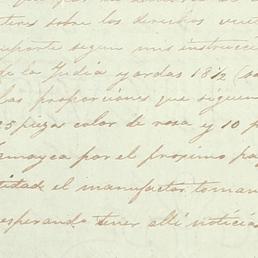 tiera sobre los derechos
importe segun mis instrucci
de la India yardas 18½
las proporciones que siguen
25 piezas color de rosa y 10 p
por el proximo pa
tidad el manufactor
esperando tener allí noticia